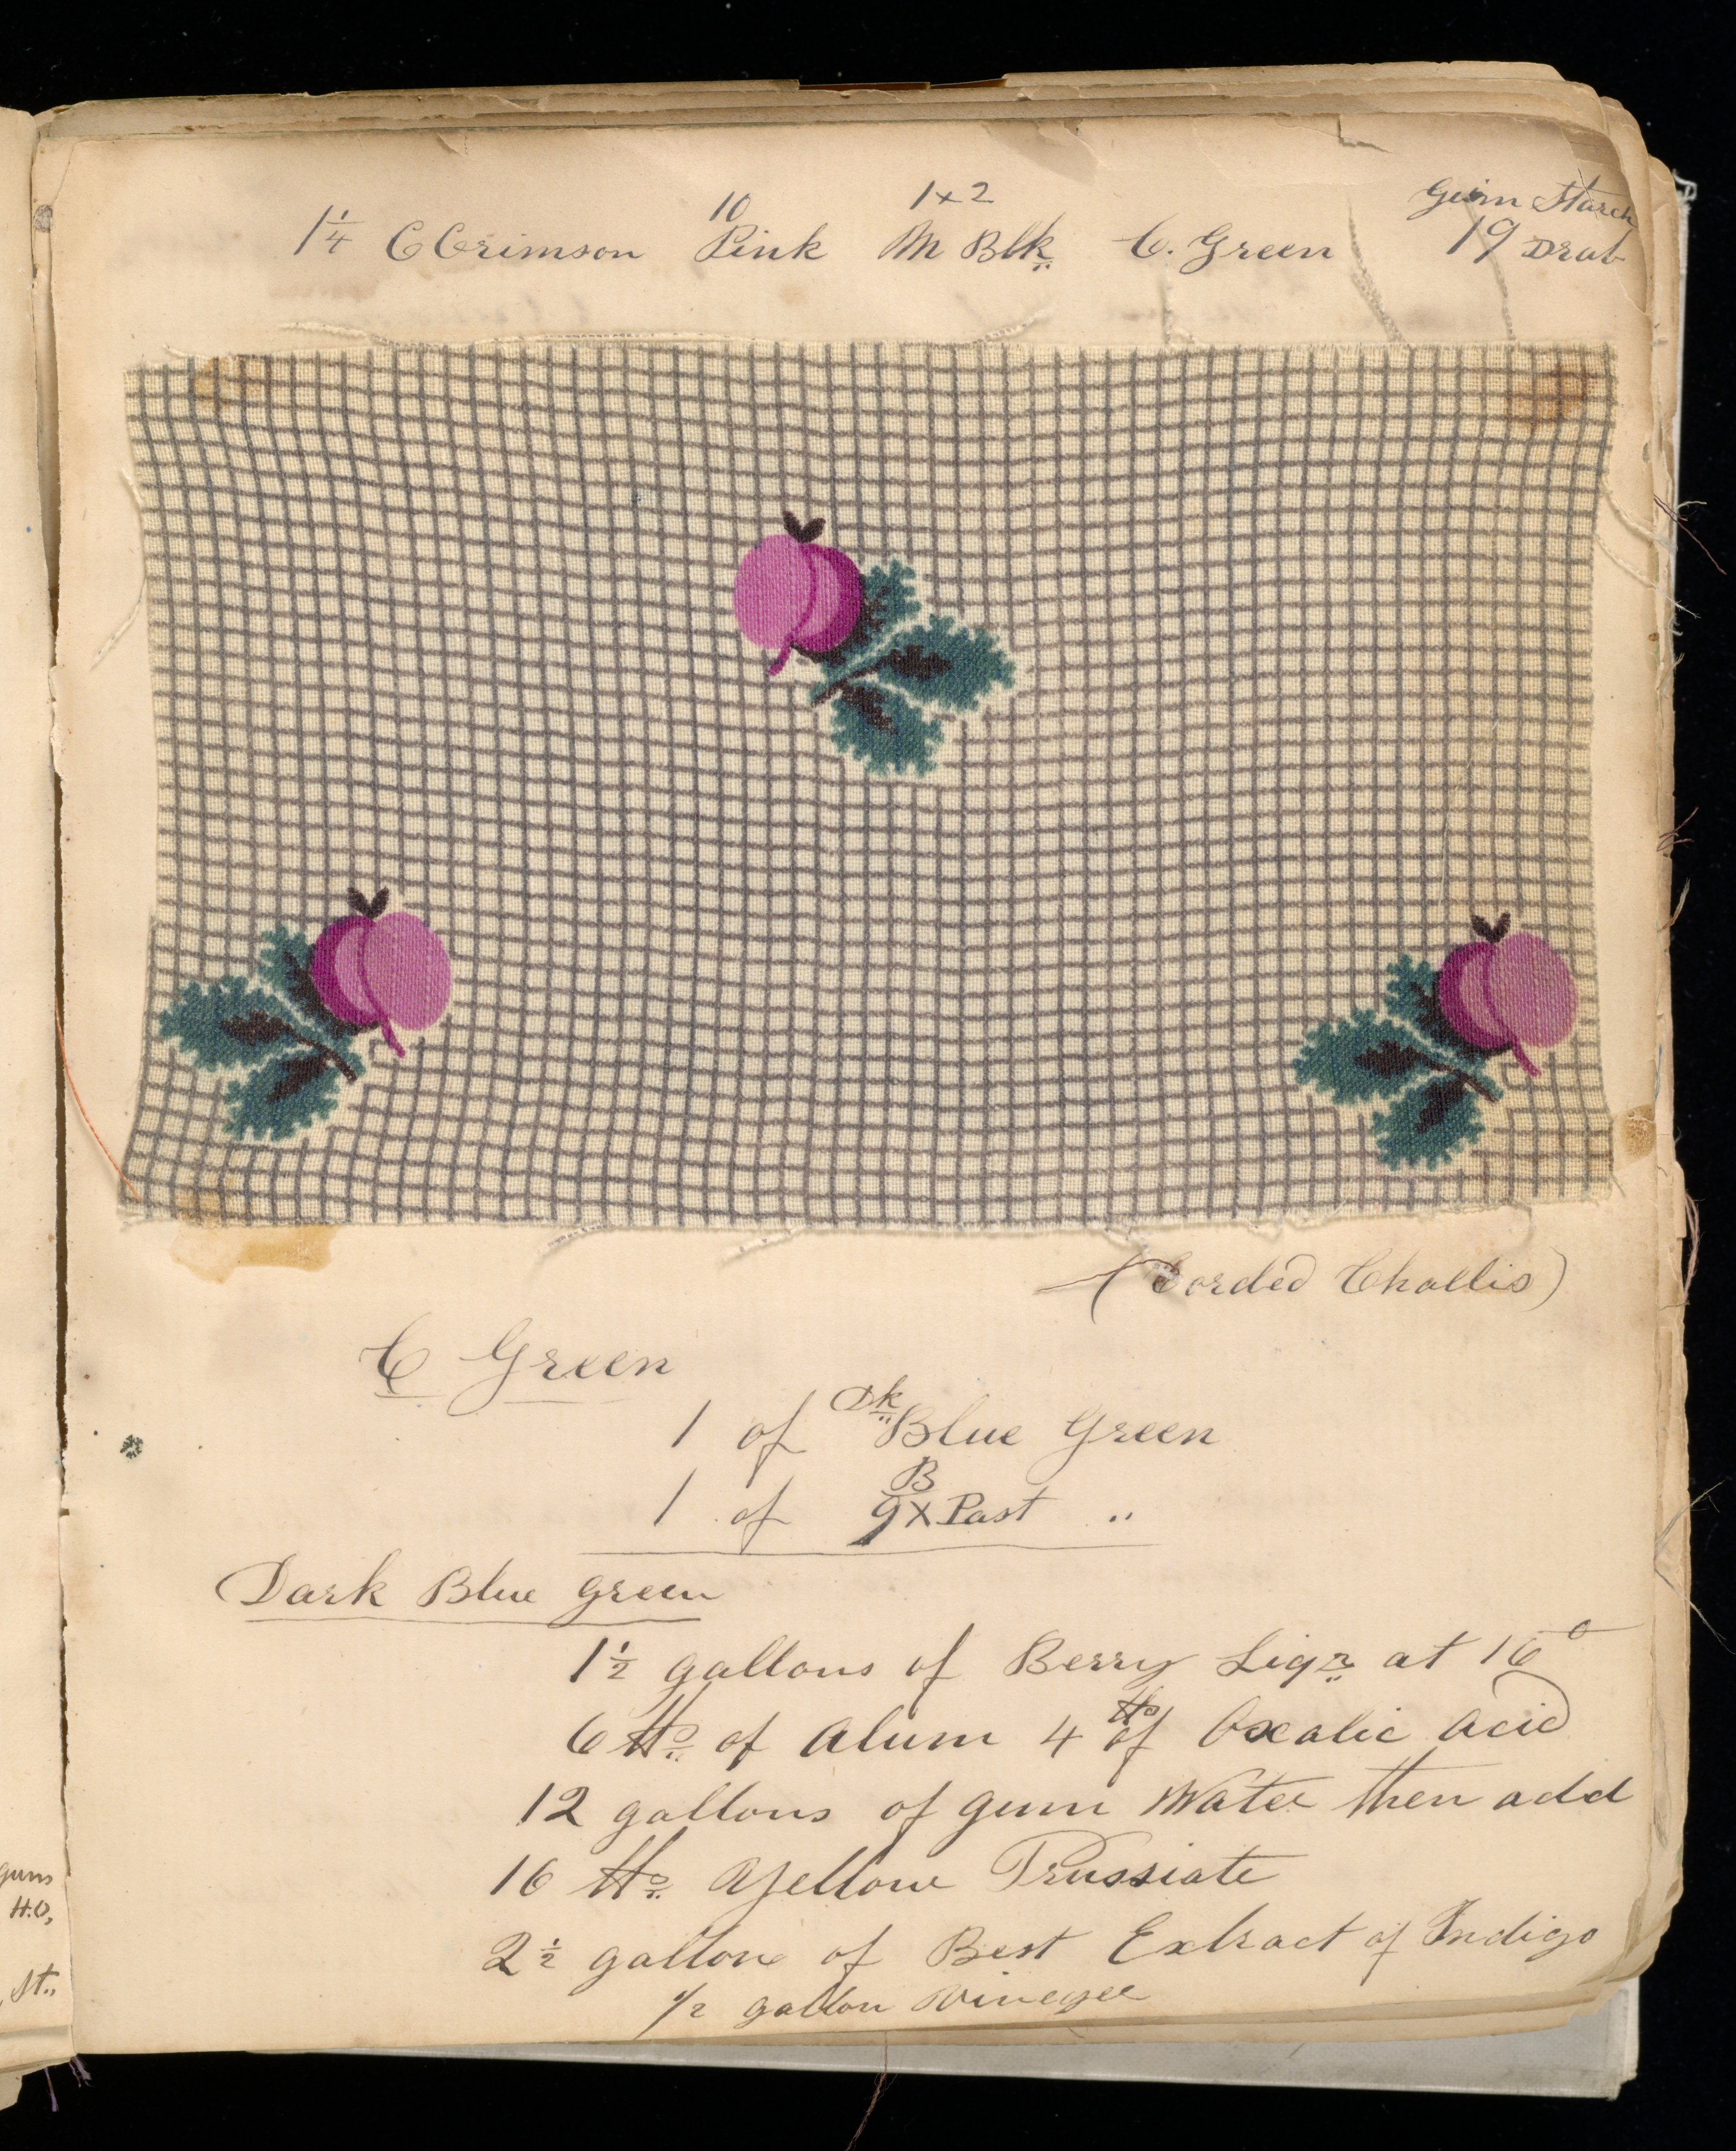 Gum Starch
10 1x2
1 1/4 C Crimson Pink M Blk C. Green 19 Drab
(Corded Challis)
C Green
1 of Dk Blue Green
1 of B 9x Past "
Dark Blue green
1 1/2 gallons of Berry Liqr at 16°
6 lbs of Alum 4 lbs of Oxalic Acid
12 gallons of gum Water then add
16 lbs Yellow Prussiate
2 1/2 gallons of Best Extract of Indigo
1/2 gallon Vinegar
gum
H.O,
St.,